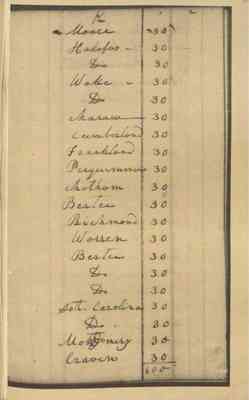 Moore 30
Halifax 30
Do 30
Wake 30
Do 30
30
Cumberland 30
Franklin 30
Perquimmons 30
Chatham 30
Bertie 30
Richmond 30
Warren 30
Bertie 30
Do 30
Do 30
Sot. Carolina 30
Do 30
Montgomery 30
Craven 30
600